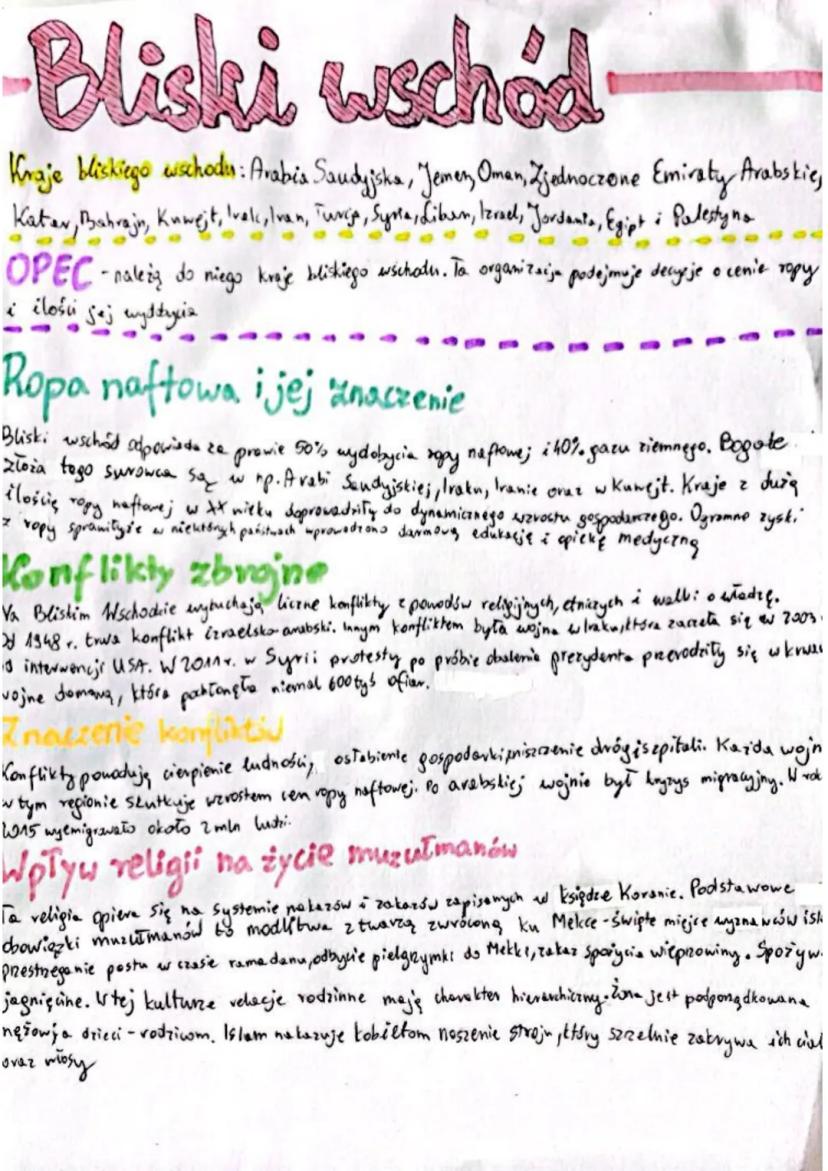 Bliski wschód
Kraje bliskiego wschodu: Arabia Saudyjska, Jemen, Oman, Zjednoczone Emiraty Arabskie,
Katar, Bahrajn, Kuwejt, Irak, Iran, Turcja, Syria, Liban, Izrael, Jordania, Egipt i Palestyna
OPEC - należą do niego kraje bliskiego wschodu. Ta organizacja podejmuje decyzje o cenie ropy
i ilości jej wydbycia
Ropa naftowa i jej znaczenie
Bliski wschód odpowiada za prawie 50% wydobycia ropy naftowej i 40% gazu ziemnego. Bogate
złoża tego surowca są w np. Arabi Saudyjskiej, Iraku, Iranie oraz w Kuwejt. Kraje z dużą
ilością ropy naftowej w XX wieku doprowadziły do dynamicznego wzrostu gospodarczego. Ogromne zyski
z ropy sprawiły że w niektórych państwach wprowadzono darmową edukację i opiekę medyczną
Konflikty zbrojne
Na Bliskim Wschodzie wybuchają liczne konflikty z powodów religijnych, etnicznych i walki o władzę.
Od 1948 r. trwa konflikt izraelsko-arabski. Innym konfliktem była wojna w Iraku, która zaczęła się w 2003
od interwencji USA. W 2011 r. w Syrii protesty po próbie obalenia prezydenta przerodziły się w krwa
wojnę domową, która pochłonęła niemal 600 tyś ofiar.
Znaczenie konfliktów
Konflikty powodują cierpienie ludności, osłabienie gospodarki, niszczenie dróg i szpitali. Każda wojn
w tym regionie skutkuje wzrostem cen ropy naftowej. Po arabskiej wojnie był kryzys migracyjny. W rok
2015 wyemigrowało około 2 mln ludzi.
Wpływ religii na życie muzułmanów
Ta religia opiera się na systemie nakazów i zakazów zapisanych w księdze Koranie. Podstawowe
obowiązki muzułmanów to modlitwa z twarzą zwróconą ku Mekce - święte miejsce wyznawców isl
przestrzeganie postu w czasie ramadanu, odbycie pielgrzymki do Mekki, zakaz spożycia wieprzowiny. Spożyw
jagnięcinę. W tej kulturze relacje rodzinne mają charakter hierarchiczny. Żona jest podporządkowana
mężowi, a dzieci - rodzicom. Islam nakazuje kobietom noszenie stroju, który szczelnie zakrywa ich ciał
oraz włosy